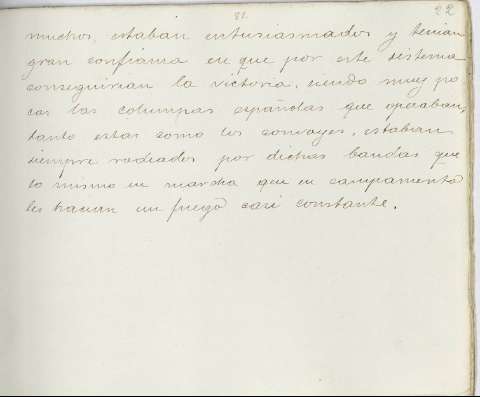 22
muchos, estaban entusiasmados y tenian
gran confianza en que por este sistema
conseguirian la victoria, siendo muy po-
cas las columnas españolas que operaban,
tanto estas como los convoyes, estaban
siempre rodeados por dichas bandas que
lo mismo en marcha que en campamento
les hacian un fuego casi constante.